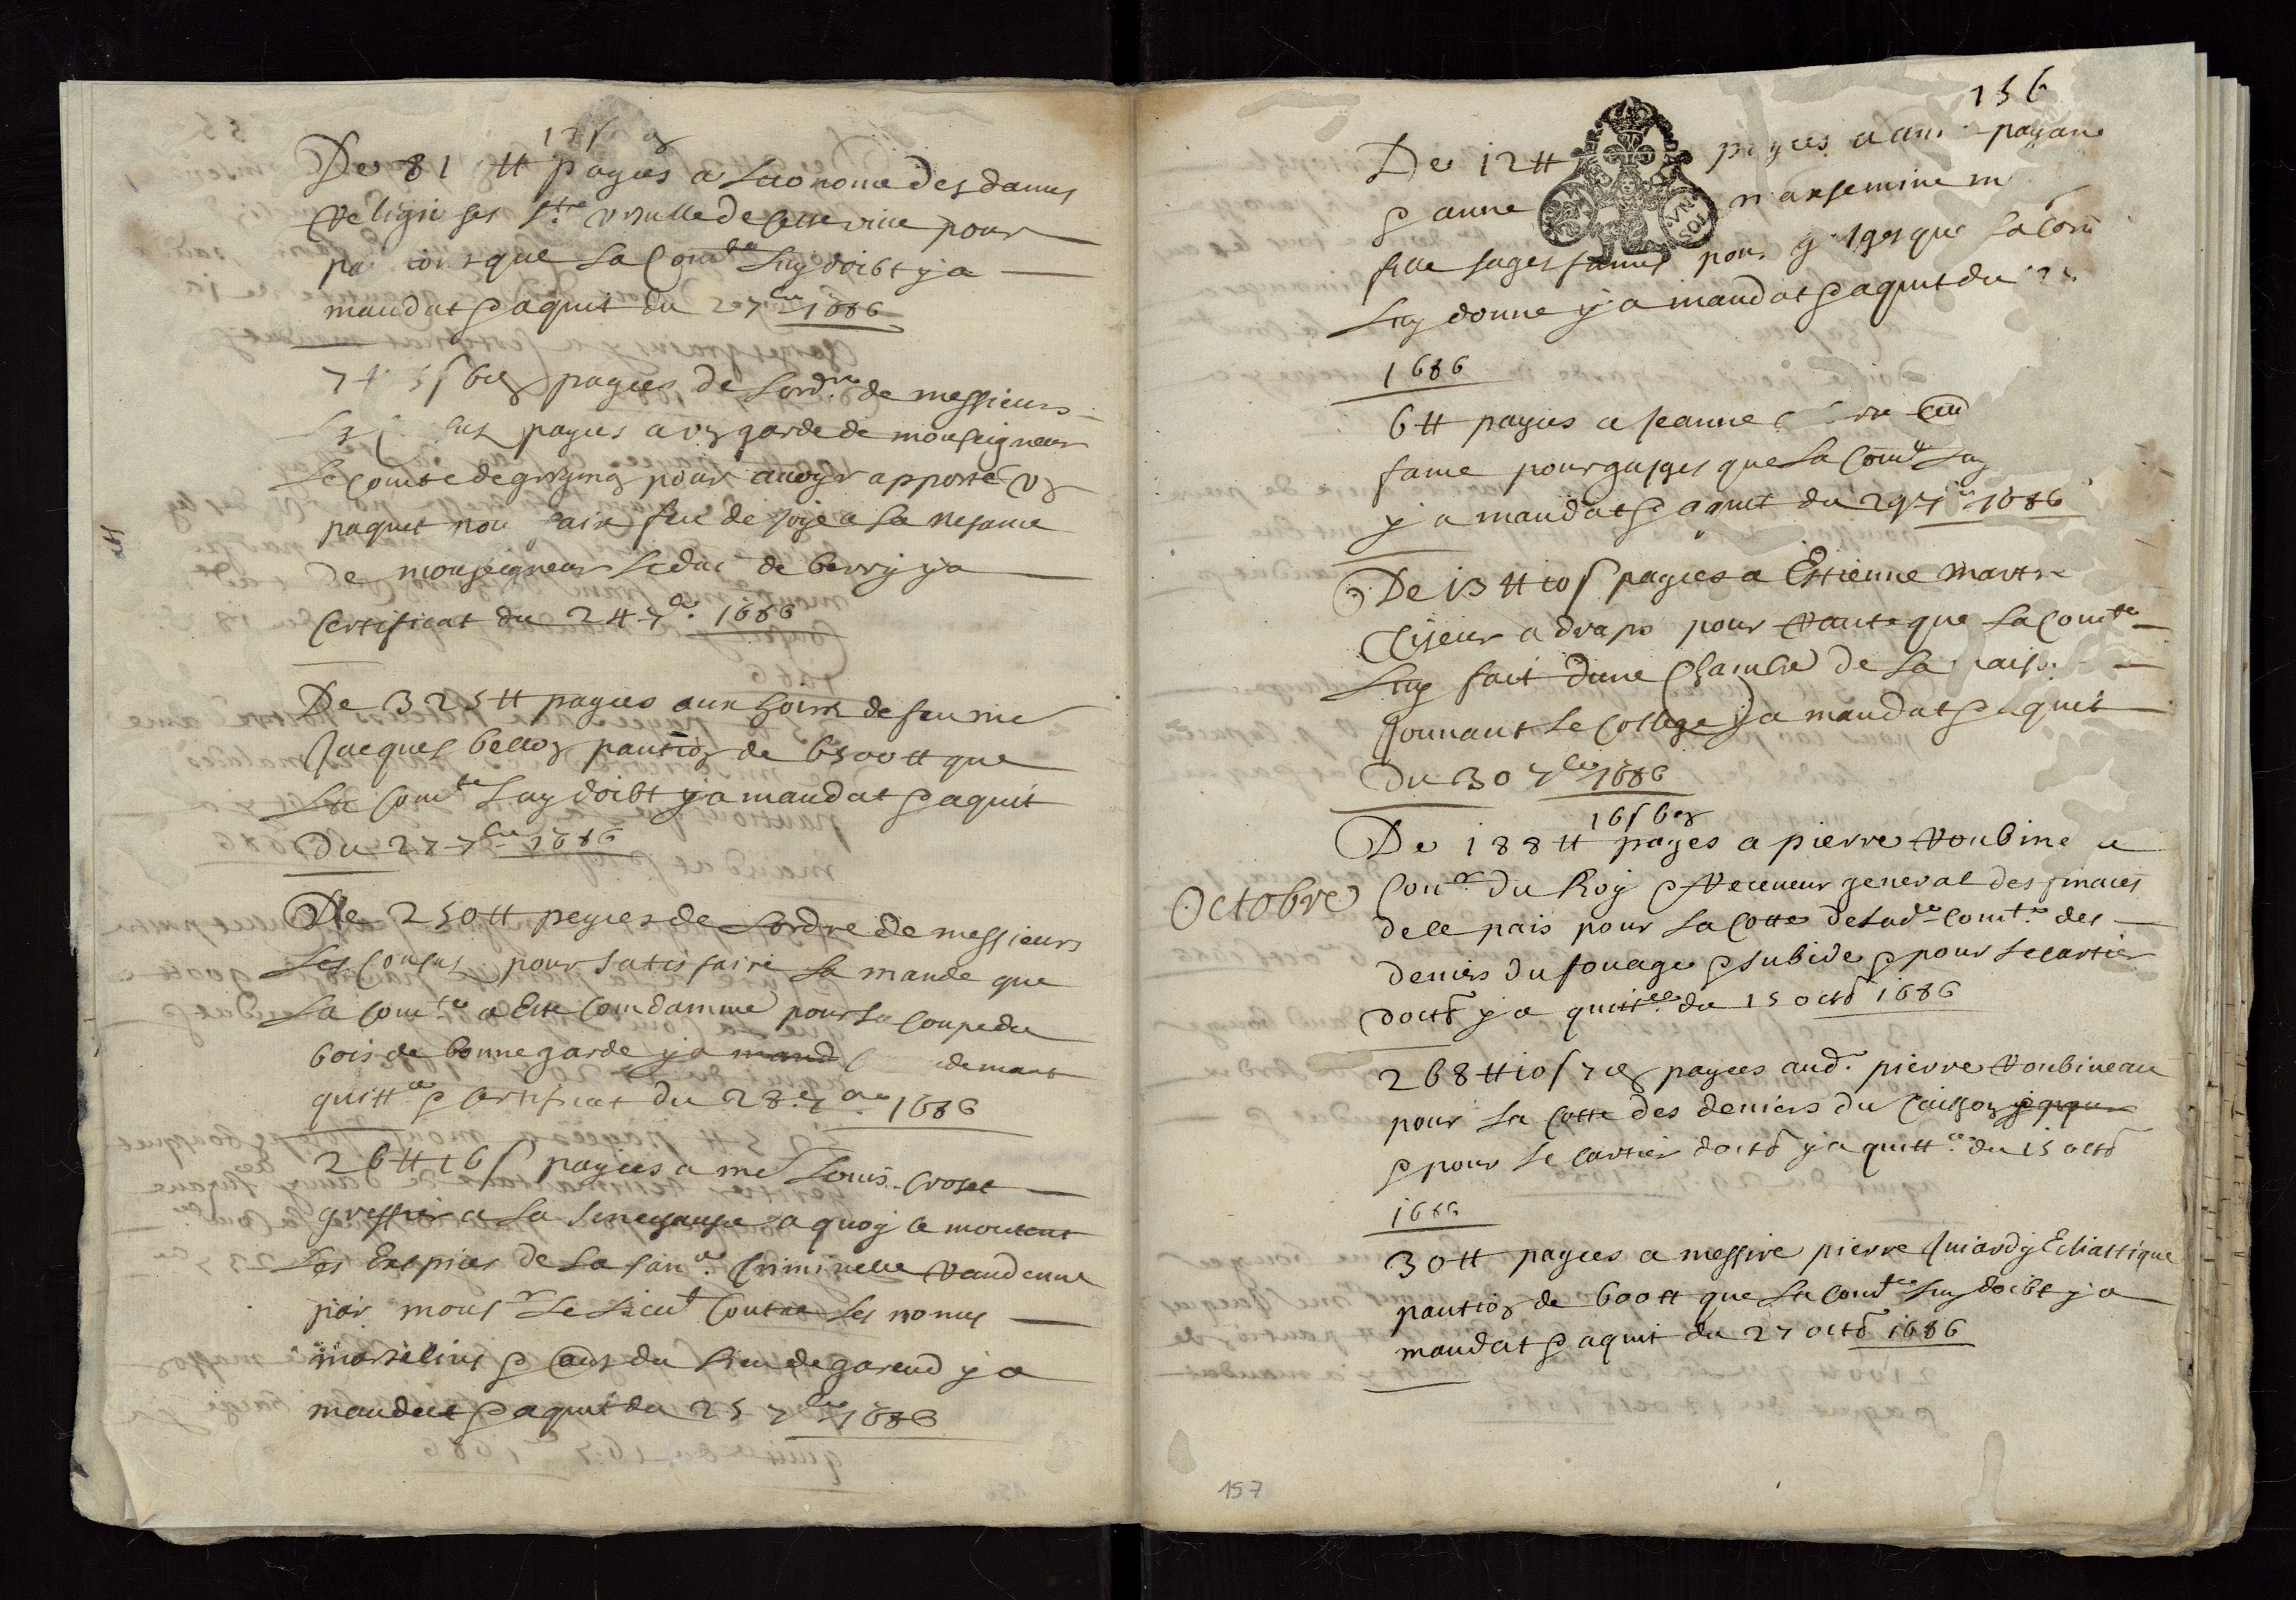 13 s 
De 81 ₶ payees a Leconome des dames
Religieuses Ste Ursulle de cette ville pour
pantions que La Comte Luy doibt y a
mandat & aquit du 27 7bre 1686
7 ₶ 5 s 6 d payees de Lordre de messieurs
Les Consuls payees a un garde de monseigneur
Le Comte de grignan pour avoyr apporte un
paquet pour faire feu de joye a La nesance
de monseigneur Le duc de berry y a
Certificat du 24 7bre 1686
De 325 ₶ payees aux hoirs de feu me
Jacques bellon pantion de 6500 ₶ que
La Comte Luy doibt y a mandat & aquit
Du 27 7bre 1686
De 250 ₶ peyees de Lordre de messieurs
Les Consuls pour satisfaire La mande que
La Comte a Este Condamne pour La Coupe du
bois de bonnegarde y a mand
quittce & Certificat du 28e 7bre 1686
26 ₶ 16 s payees a me Louis Croset
greffier a La senechausse a quoy ce montent
Les Espices de La sance Criminelle Randeue
par monsr Le Lieut Contre Les nomes
marselins & du Lieu de gareud y a
mandat & aquit du 25 7bre 1686
156
De 12 ₶ payees a payane
& anne
sage fames pour gaiges que La Com
Luy donne y a mandat & aquit du
1686
6 ₶ payees a Jeanne
fame pour gajges que La Comte Luy
y a mandat & aquit du 29 7bre 1686
De 13 ₶ 10 s payees a Estienne martre
Tijeur a draps pour Rante que La Comte
Luy fait dune Chambre de La
Joignant Le College y a mandat & aquit
Du 30 7bre 1686
16 s 6 d
De 188 ₶ payes a pierre Roubine a
Octobre
Conr du Roy & Receveur general des finaces
de ce pais pour La Cotte de Lade Comte des
deniers du fouage & subside & pour Le Cartier
doctb y a quittce du 15 octb 1686
268 ₶ 10 s 7 d payees aud. pierre Roubineau
pour La Cotte des deniers du Taillon
& pour Le Cartier doctb y a quittce du 15 octb
1686
30 ₶ payees a messire pierre Juiardy Ecliastique
pantion de 600 ₶ que La Comte Luy doibt y a
mandat & aquit du 27 octb 1686
157